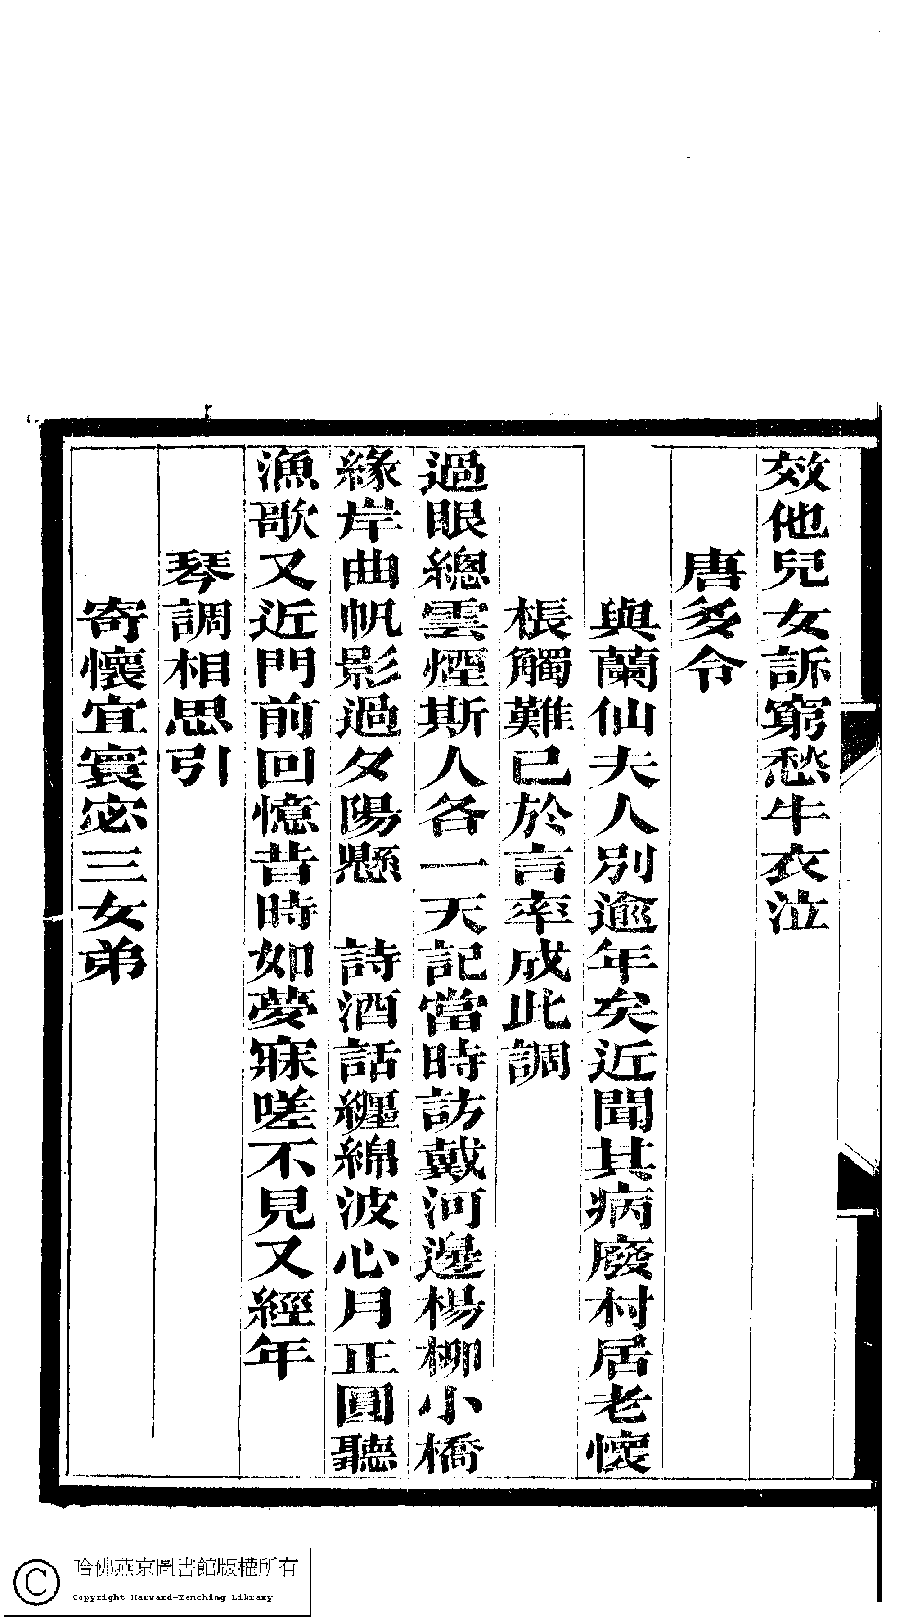 效他兒女訴窮愁牛衣泣
唐多令
與蘭仙夫人別逾年矣近聞其病廢村居老懷
棖觸難已於言率成此調
過眼總雲煙斯人各一天記當時訪戴河邊楊柳小橋
緣岸曲帆影過夕陽懸　詩酒話纏綿波心月正圓聽
漁歌又近門前回憶昔時如夢寐嗟不見又經年
琴調相思引
寄懷宜寰宓三女弟
哈佛燕京圖書館版權所有
Copyright Harvard-Yenching Library